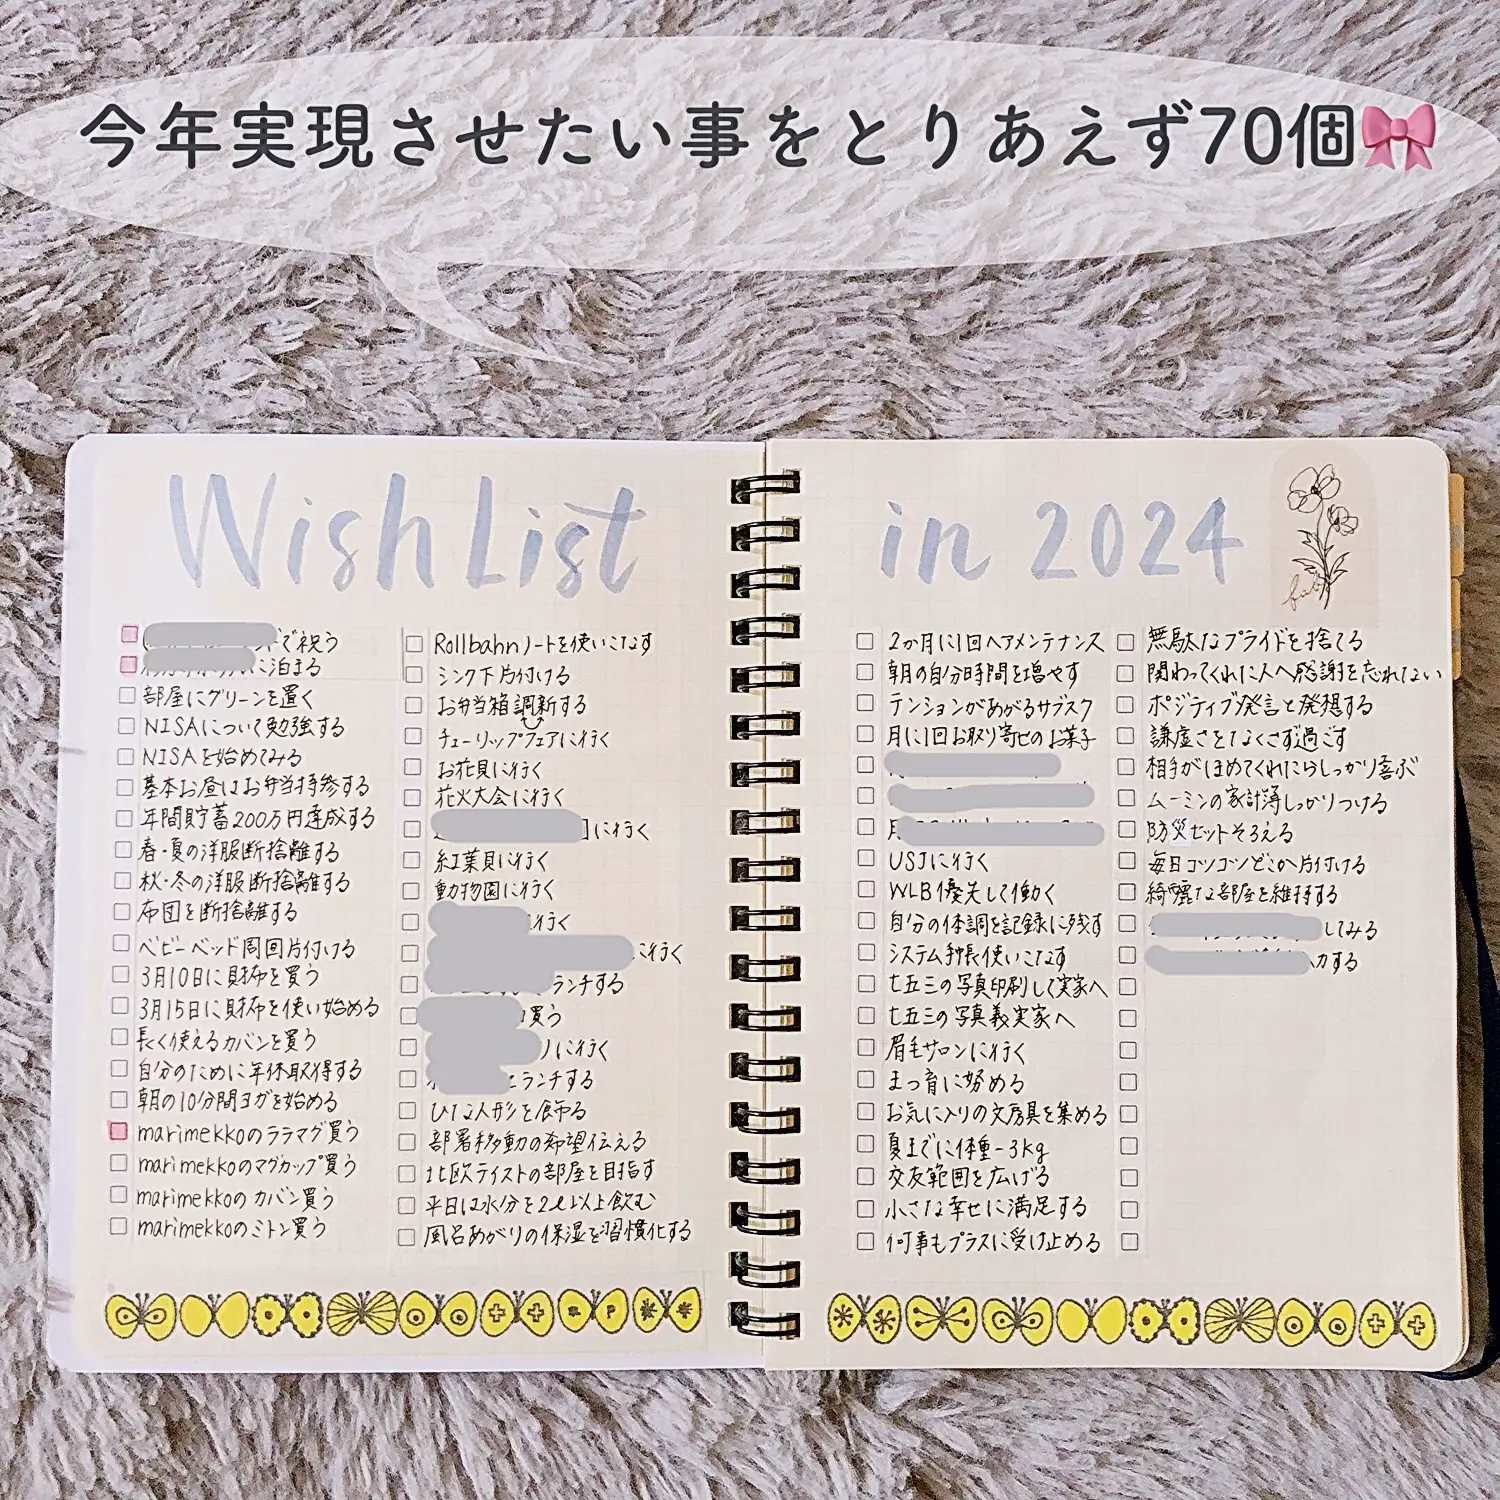 今年実現させたい事をとりあえず70個🎀
Wish List
で祝う
に泊まる
部屋にグリーンを置く
NISAについて勉強する
NISAを始めてみる
基本お昼はお弁当持参する
年間貯蓄200万円達成する
春・夏の洋服断捨離する
秋・冬の洋服断捨離する
布団を断捨離する
ベビーベッド周回片付ける
3月10日に財布を買う
3月15日に財布を使い始める
長く使えるカバンを買う
自分のために年休取得する
朝の10分間ヨガを始める
marimekkoのララマグ買う
marimekkoのマグカップ買う
marimekkoのカバン買う
marimekkoのミトン買う
Rollbahnノートを使いこなす
シンク下片付ける
お弁当箱調新する
チューリップフェアに行く
お花見に行く
花火大会に行く
に行く
紅葉見に行く
動物園に行く
行く
に行く
ランチする
買う
に行く
ランチする
ひな人形を飾る
部署移動の希望伝える
北欧テイストの部屋を目指す
平日は水分を2ℓ以上飲む
風呂あがりの保湿を習慣化する
in 2024
2か月に1回ヘアメンテナンス
朝の自分時間を増やす
テンションがあがるサブスク
月に1回お取り寄せのお菓子
月
USJに行く
WLB優先して働く
自分の体調を記録に残す
システム手帳使いこなす
七五三の写真印刷して実家へ
七五三の写真義実家へ
眉毛サロンに行く
まつ育に努める
お気に入りの文房具を集める
夏までに体重-3kg
交友範囲を広げる
小さな幸せに満足する
何事もプラスに受け止める
無駄なプライドを捨てる
関わってくれた人へ感謝を忘れない
ポジティブ発言と発想する
謙虚さをなくさず過ごす
相手がほめてくれたらしっかり喜ぶ
ムーミンの家計簿しっかりつける
防災セットそろえる
毎日コツコツどこか片付ける
綺麗な部屋を維持する
してみる
する